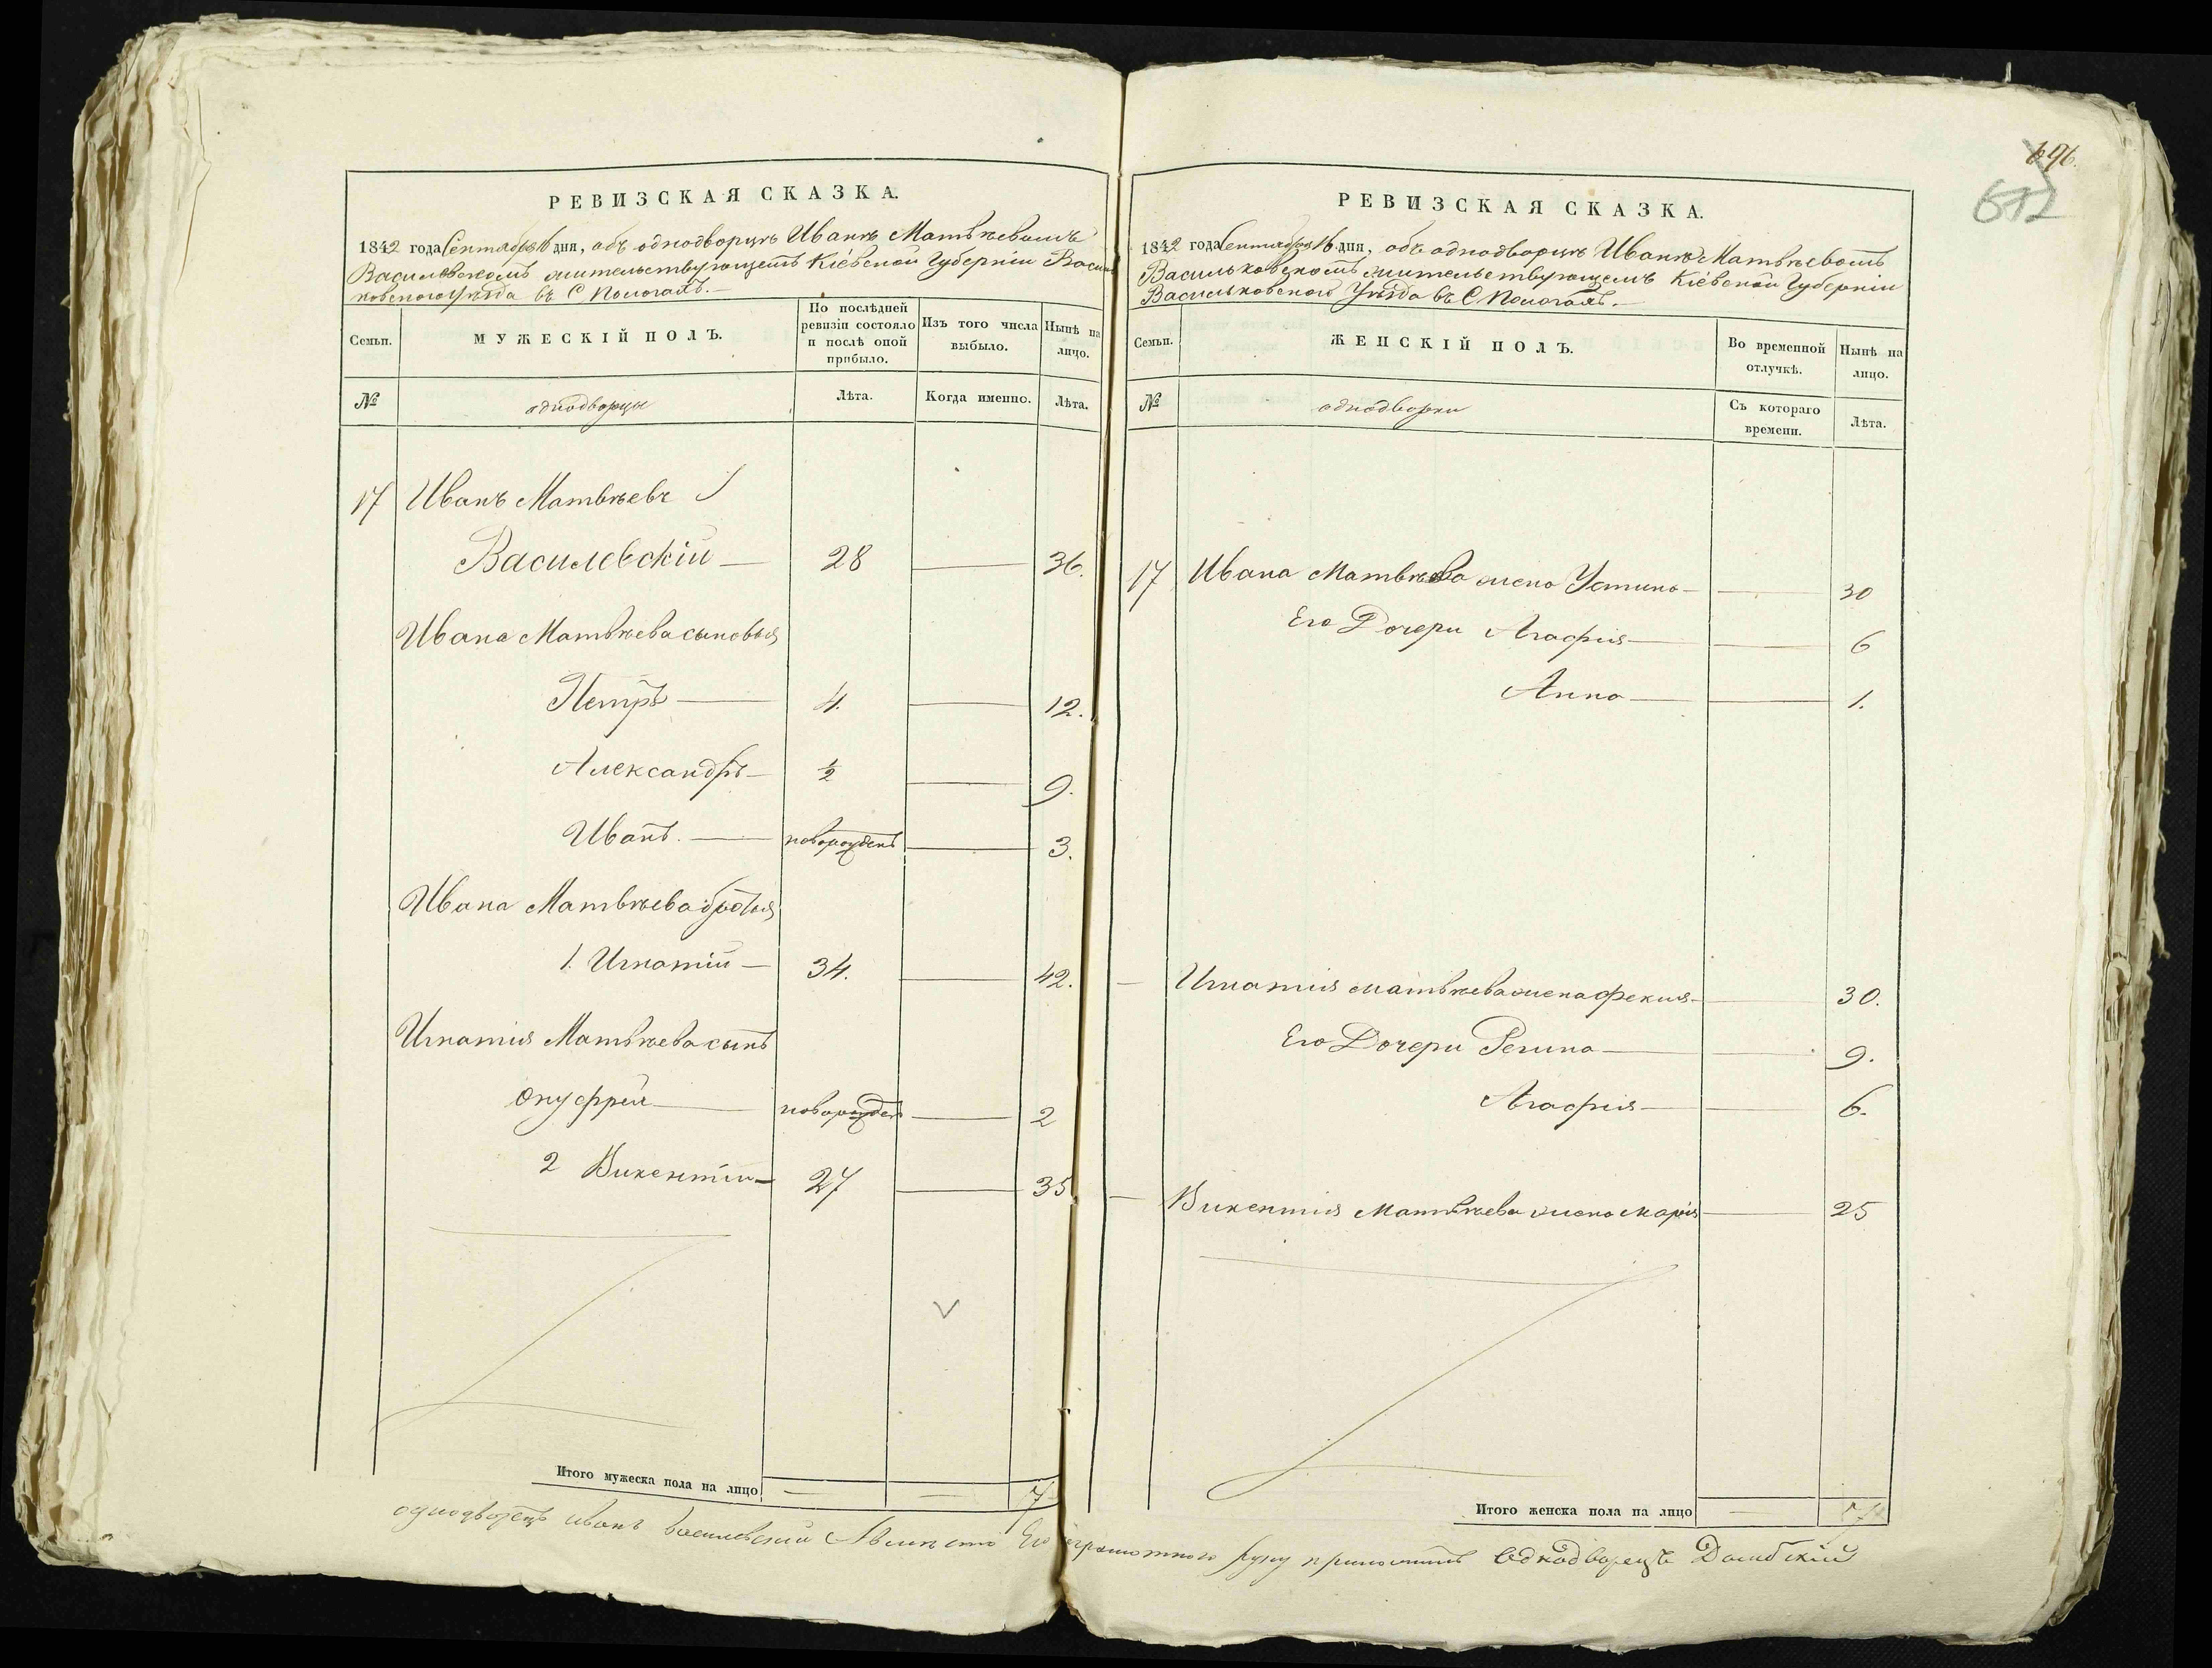 РЕВИЗСКАЯ СКАЗКА.
1842 года Сентября 16 дня, объ однодворцѣ Иванѣ Матвѣевомъ
Василевскомъ жительствующемъ Кіевской Губерніи Василь
ковского Уѣзда въ С
Семьи.
МУЖЕСКІЙ ПОЛЪ.
По послѣдней
ревизіи состояло
и послѣ оной
прибыло.
Изъ того числа
выбыло.
Нынѣ на
лицо.
№
однодворцы
Лѣта.
Когда именно.
Лѣта.
17 Иванъ Матвѣевъ
Василевскій — 28 — 36.
Ивана Матвѣева сыновья
Петръ — 4. — 12.
Александръ — ½ — 9.
Иванъ. — новорожденъ — 3.
Ивана Матвѣева братья
1. Игнатій — 34. — 42.
Игнатія Матвѣева сынъ
Онуфрей — новорожден — 2
2 Викентій — 27 — 35
Итого мужеска пола на лицо — — 7
однодворецъ иванъ василевский
696.
612
РЕВИЗСКАЯ СКАЗКА.
1842 года Сентября 16 дня, объ однодворцѣ Иванѣ Матвѣевомъ
Васильковскомъ жительствующемъ Кіевской Губерніи
Васильковского Уѣзда въ С
Семьи.
ЖЕНСКІЙ ПОЛЪ.
Во временной
отлучкѣ.
Нынѣ на
лицо.
№
однодворки
Съ котораго
времени.
Лѣта.
17 Ивана Матвѣева жена Устина — — 30
Его Дочери Агафия — — 6
Анна — — 1.
— Игнатия матвѣева жена Фекия — — 30.
Его Дочери Регина — — 9.
Агафия — — 6.
— Викентия Матвѣева жена Мария — — 25
Итого женска пола на лицо — 7
руку приложилъ Однодворецъ